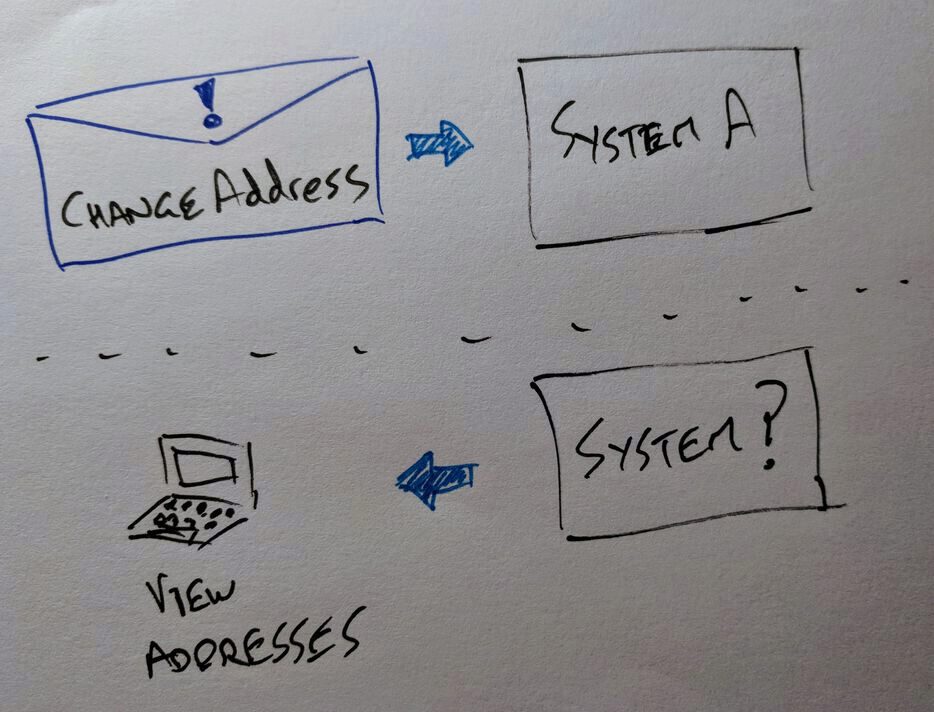 !
CHANGE Address
SYSTEM A
SYSTEM ?
VIEW
ADDRESSES